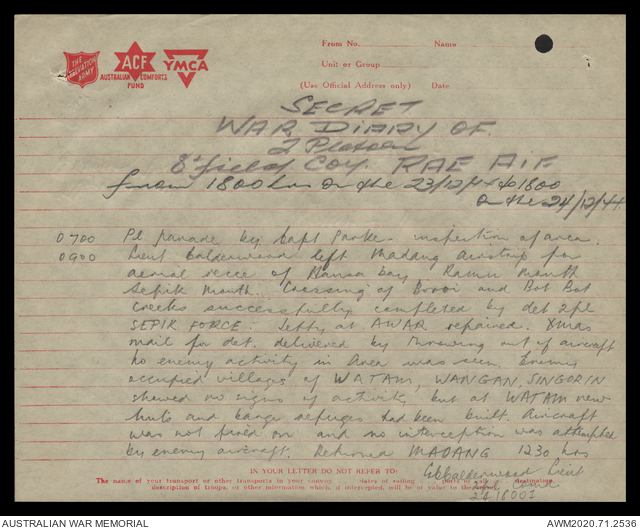 THE SALVATION ARMY
ACF
AUSTRALIAN COMFORTS FUND
YMCA
From No. Name
Unit or Group
(Use Official Address only) Date
SECRET
WAR DIARY OF
2 Platoon
8 field Coy. RAE AIF
from 1800 hrs on the 23/12/44 to 1800
on the 24/12/44
0700 Pl parade by Capt Parker inspection of area.
0900 Lieut Calderwood left Madang airstrip for
aerial recce of Hansa bay Ramu Mouth
Sepik Mouth. Crossing of Boroi and Bot Bot
Creeks successfully completed by det 2 pl
SEPIK FORCE. Jetty at AWAR repaired. Xmas
mail for det. delivered by throwing out of aircraft
No enemy activity in area was seen. Enemy
occupied villages of WATAM, WANGAN, SINGORIN
showed no signs of activity but at WATAM new
huts and refuges had been built. Aircraft
was not fired on and no interception was attempted
by enemy aircraft. Returned MADANG 1230 hrs
Calderwood Lieut
IN YOUR LETTER DO NOT REFER TO:
The name of your transport or other transports in your convoy dates of sailing ports of destination
description of troops, or other information which, if intercepted, will be of value to the enemy.
AUSTRALIAN WAR MEMORIAL AWM2020.71.2536